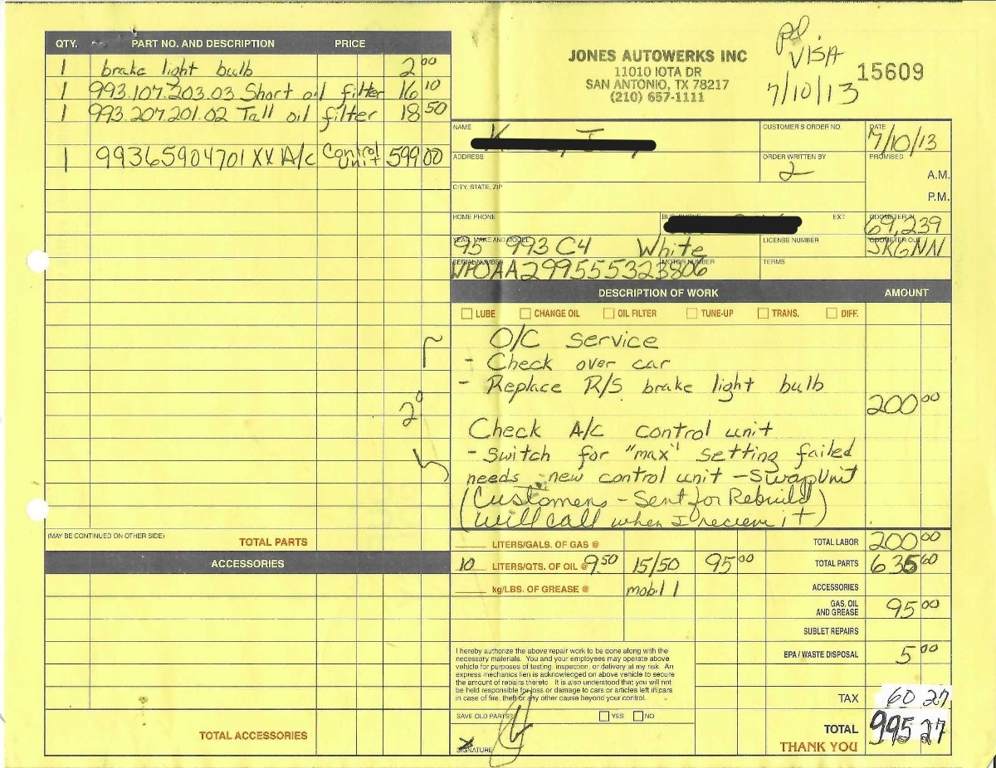 QTY. PART NO. AND DESCRIPTION PRICE
1 brake light bulb 2 00
1 993.107.203.03 Short oil filter 16 10
1 993.207.201.02 Tall oil filter 18 50
1 99365904701XX A/c Control Unit 599 00
(MAY BE CONTINUED ON OTHER SIDE) TOTAL PARTS
ACCESSORIES
TOTAL ACCESSORIES
JONES AUTOWERKS INC
11010 IOTA DR
SAN ANTONIO, TX 78217
(210) 657-1111
pd.
VISA
7/10/13
15609
NAME
CUSTOMER'S ORDER NO.
DATE 7/10/13
ADDRESS
ORDER WRITTEN BY 2
PROMISED
A.M.
P.M.
CITY, STATE, ZIP
HOME PHONE
EXT
ODOMETER IN 69,239
YEAR, MAKE AND MODEL 95 993 C4 White
LICENSE NUMBER
ODOMETER OUT
SERIAL NUMBER WPOAA299555323806
MOTOR NUMBER
TERMS
DESCRIPTION OF WORK AMOUNT
LUBE CHANGE OIL OIL FILTER TUNE-UP TRANS. DIFF.
O/C service
- Check over car
- Replace R/S brake light bulb
200 00
Check A/c control unit
- Switch for "max" setting failed
needs new control unit - Swap Unit
(Customers - Sent for Rebuild
will call when I recieve it)
LITERS/GALS. OF GAS @
TOTAL LABOR 200 00
10 LITERS/QTS. OF OIL @ 9.50 15/50 95 00
TOTAL PARTS 635 60
kg/LBS. OF GREASE @ mobil 1
ACCESSORIES
GAS, OIL AND GREASE 95 00
SUBLET REPAIRS
EPA / WASTE DISPOSAL 5 00
I hereby authorize the above repair work to be done along with the
necessary materials. You and your employees may operate above
vehicle for purposes of testing, inspection, or delivery at my risk. An
express mechanics lien is acknowledged on above vehicle to secure
the amount of repairs thereto. It is also understood that you will not
be held responsible for loss or damage to cars or articles left in cars
in case of fire, theft or any other cause beyond your control.
TAX 60 27
SAVE OLD PARTS? YES NO
TOTAL 995 27
THANK YOU
X SIGNATURE